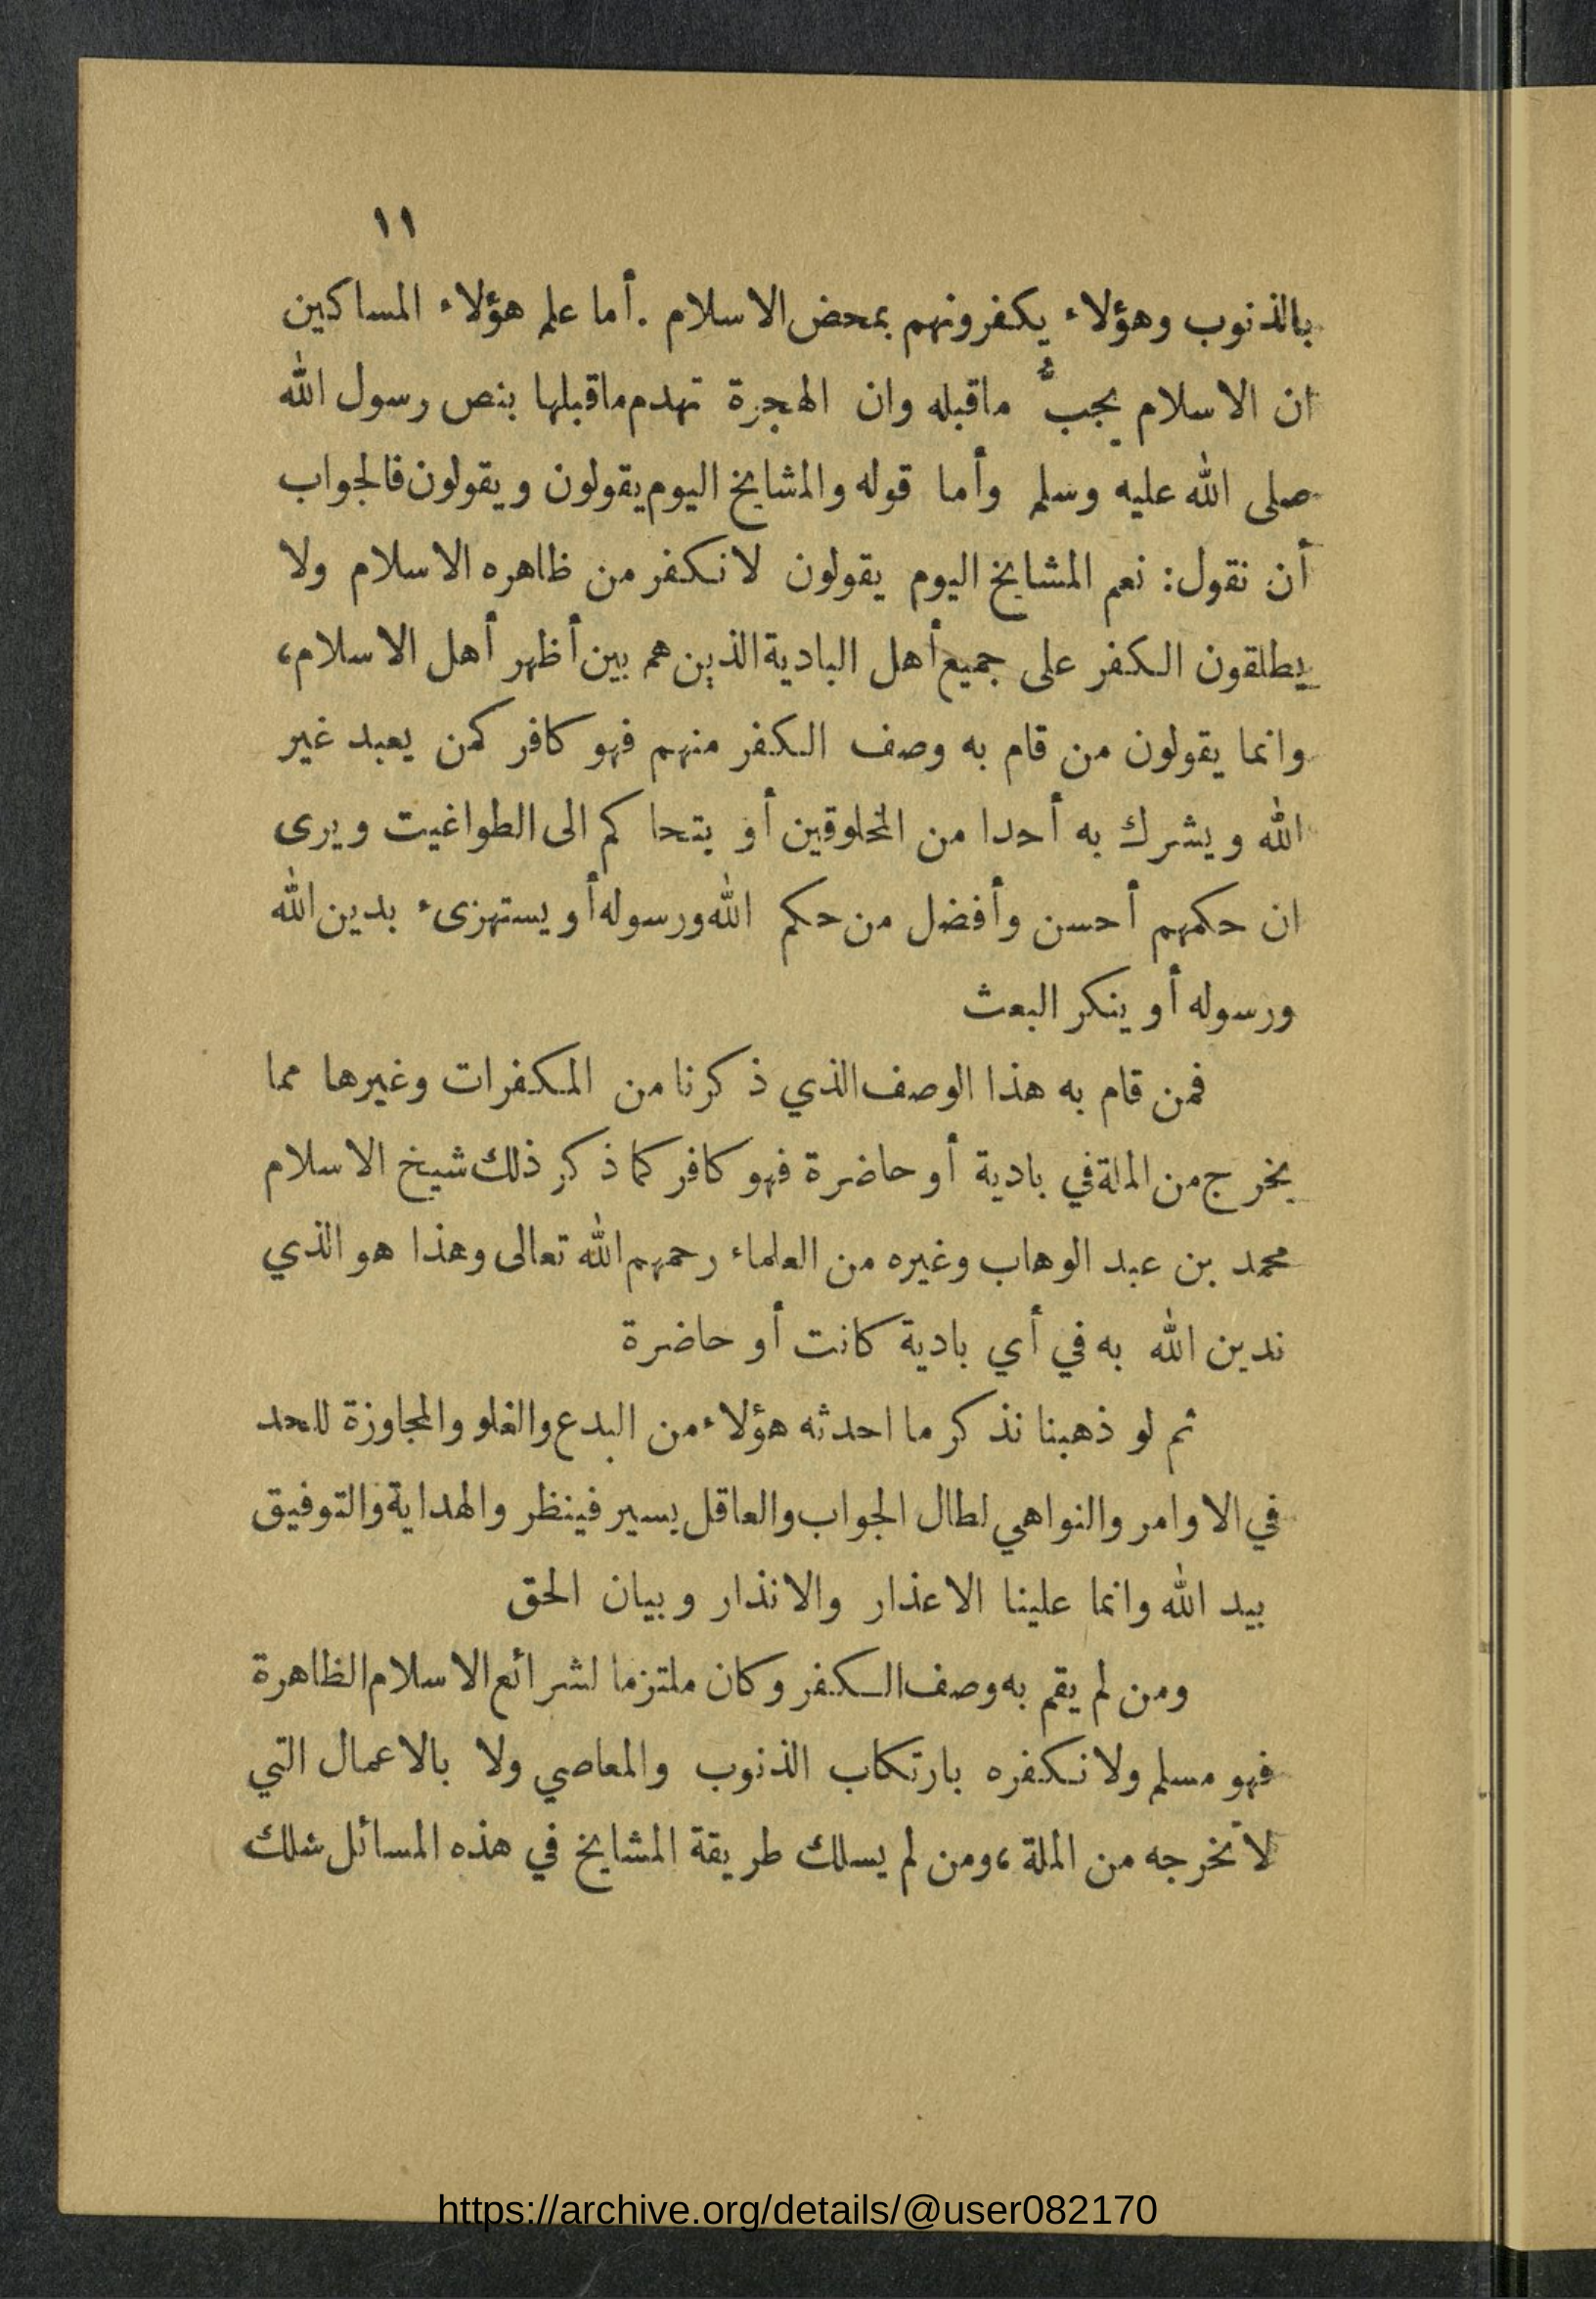 ١١
بالذنوب وهؤلاء يكفرونهم بمحض الاسلام . أما علم هؤلاء المساكين
ان الاسلام يجبُّ ماقبله وان الهجرة تهدم ماقبلها بنص رسول الله
صلى الله عليه وسلم وأما قوله والمشايخ اليوم يقولون ويقولون فالجواب
أن نقول: نعم المشايخ اليوم يقولون لا نكفر من ظاهره الاسلام ولا
يطلقون الكفر على جميع أهل البادية الذين هم بين أظهر أهل الاسلام،
وانما يقولون من قام به وصف الكفر منهم فهو كافر كمن يعبد غير
الله ويشرك به أحدا من المخلوقين أو يتحاكم الى الطواغيت ويرى
ان حكمهم أحسن وأفضل من حكم الله ورسوله أو يستهزىء بدين الله
ورسوله أو ينكر البعث
فمن قام به هذا الوصف الذي ذكرنا من المكفرات وغيرها مما
يخرج من الملة في بادية أو حاضرة فهو كافر كما ذكر ذلك شيخ الاسلام
محمد بن عبد الوهاب وغيره من العلماء رحمهم الله تعالى وهذا هو الذي
ندين الله به في أي بادية كانت أو حاضرة
ثم لو ذهبنا نذكر ما احدثه هؤلاء من البدع والغلو والمجاوزة للحد
في الاوامر والنواهي لطال الجواب والعاقل يسير فينظر والهداية والتوفيق
بيد الله وانما علينا الاعذار والانذار وبيان الحق
ومن لم يقم به وصف الكفر وكان ملتزما لشرائع الاسلام الظاهرة
فهو مسلم ولا نكفره بارتكاب الذنوب والمعاصي ولا بالاعمال التي
لا تخرجه من الملة، ومن لم يسلك طريقة المشايخ في هذه المسائل سلك
https://archive.org/details/@user082170